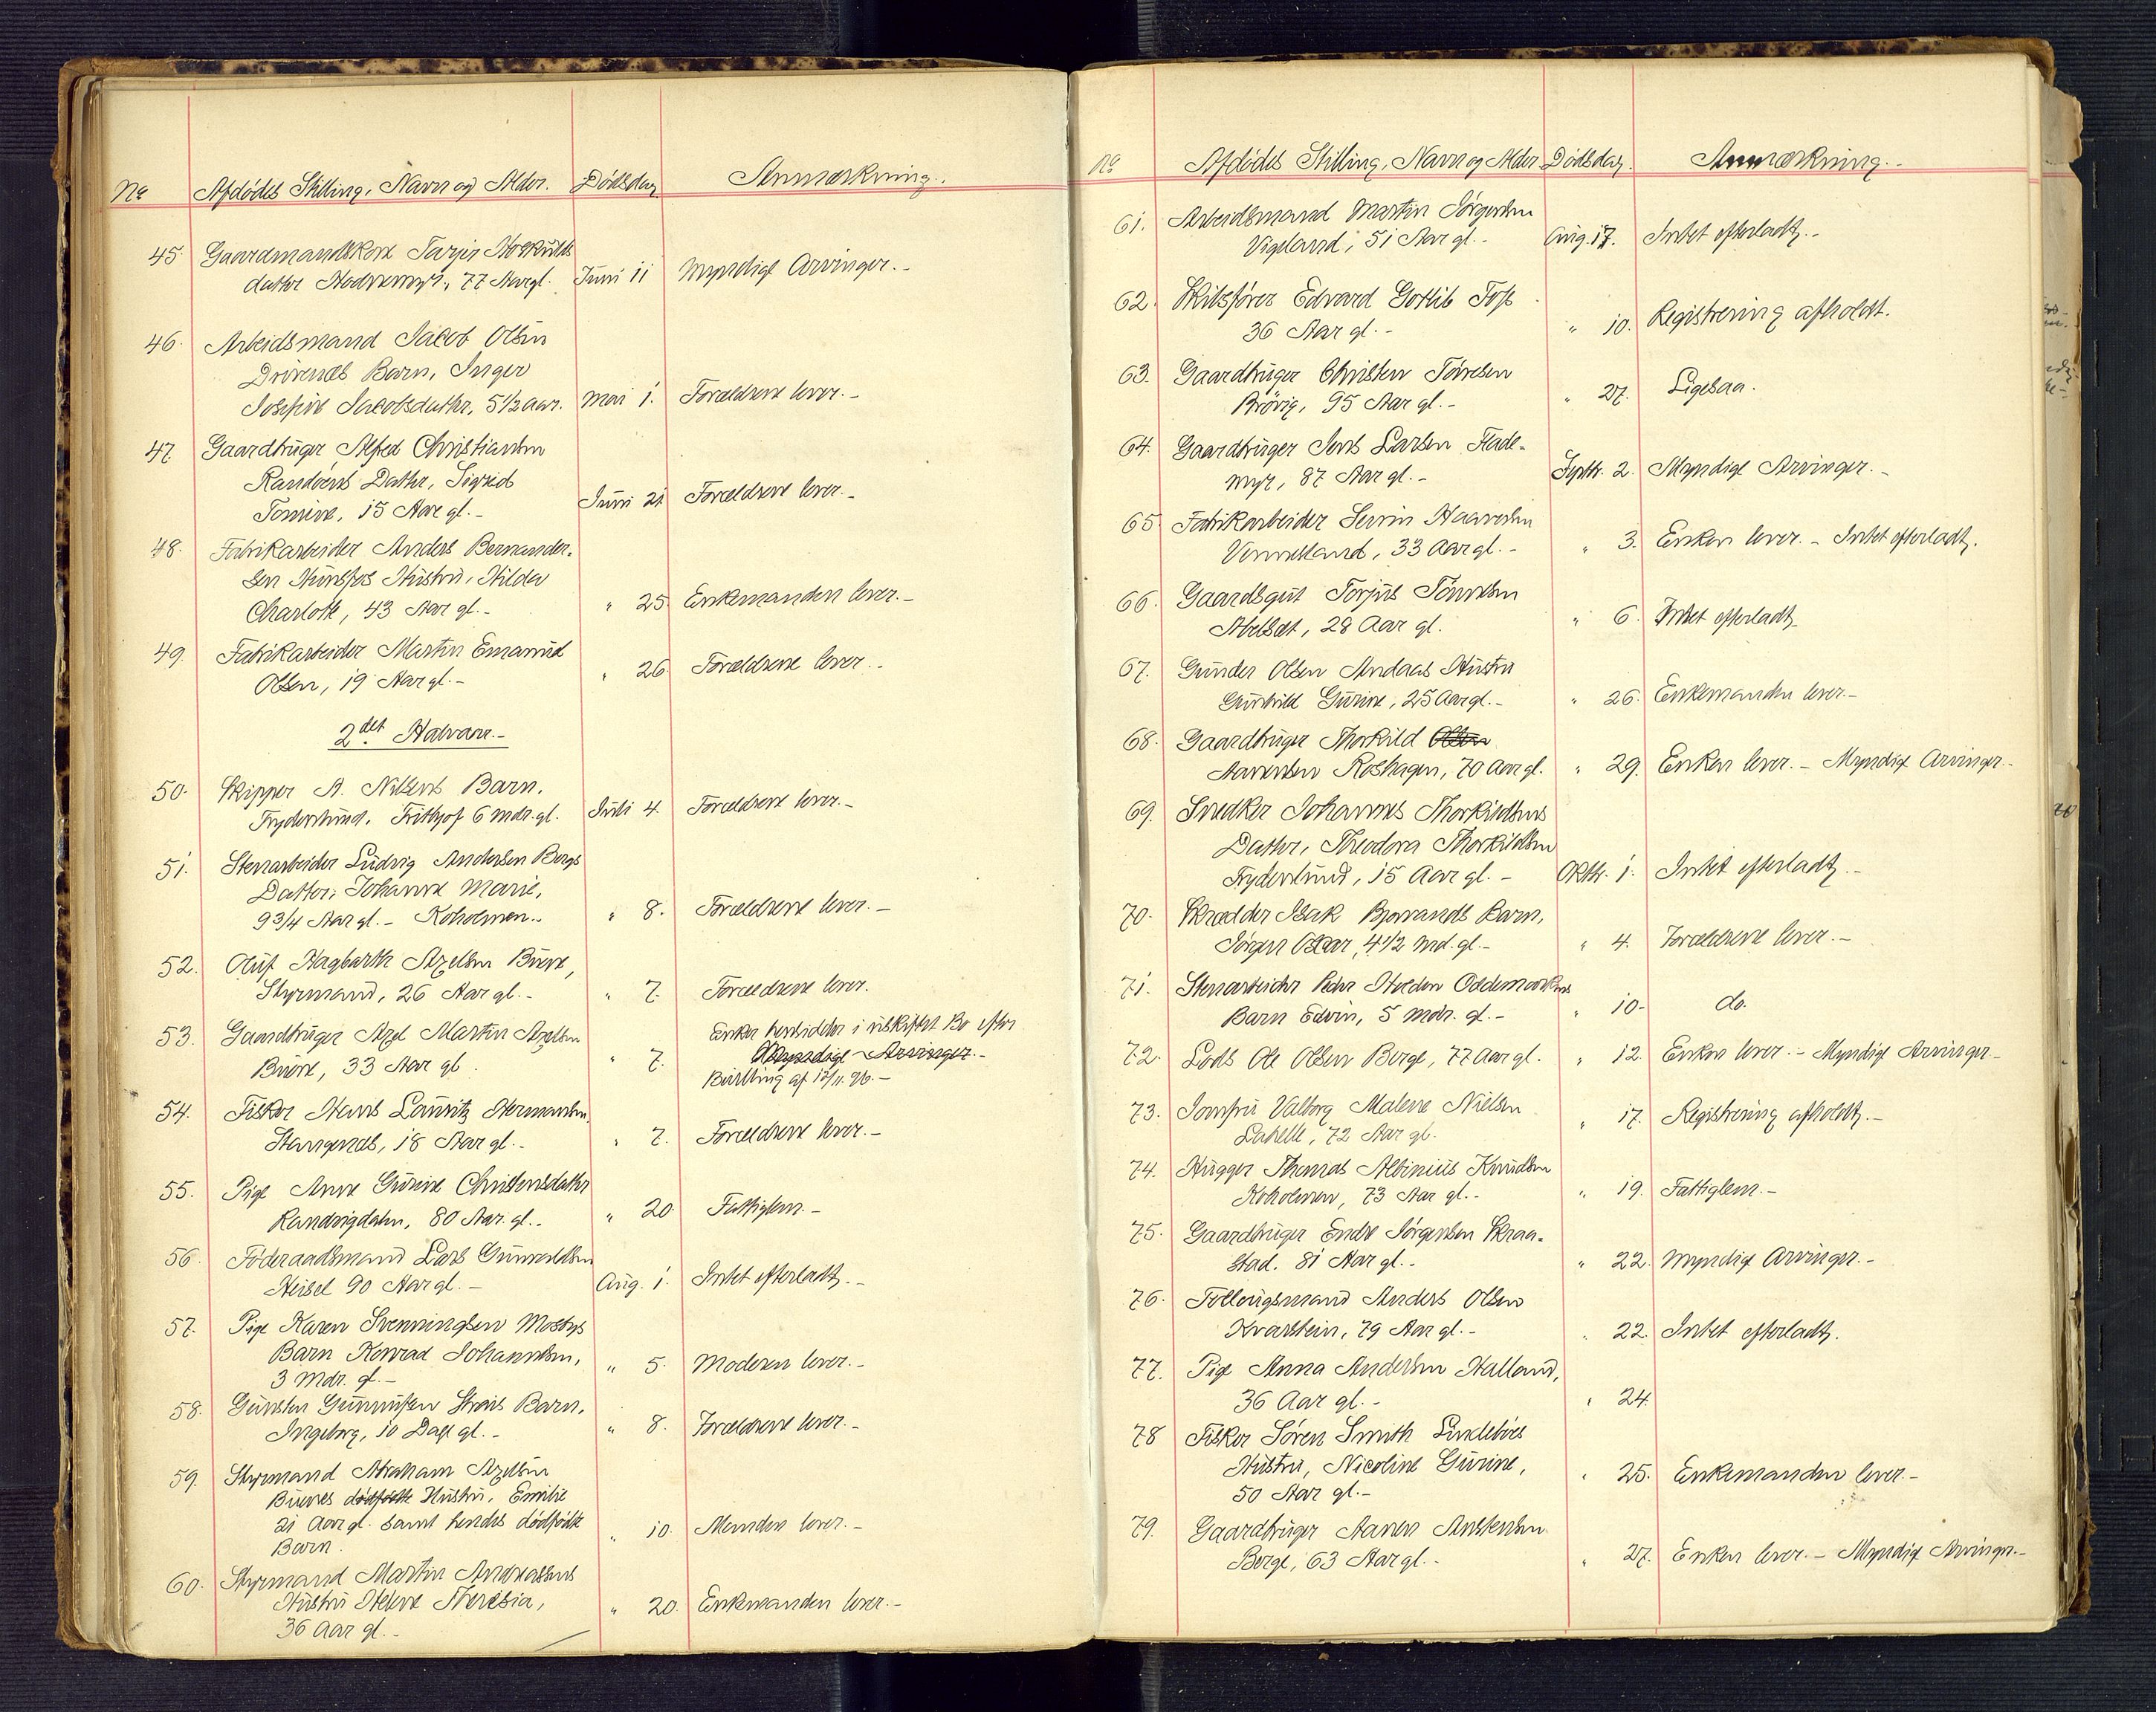 No Afdødes Stilling, Navn og Alder. Dødsdag Anmærkning.
45 Gaardmandskone Tarjer Hoskulds
datter Hodnemyr, 77 Aar gl. Juni 11 Myndige Arvinger.-
46. Arbeidsmand Jacob Olsen
Drivenæs Barn, Inger
Josefine Jacobsdatter, 5 1/2 Aar. Mai 1. Forældrene lever.-
47. Gaardbruger Alfred Christiansen
Randøens Datter, Sigrid
Tomine, 15 Aar gl.- Juni 21 Forældrene lever.-
48. Fabrikarbeider Anders Bernander-
sen Hunsfos Hustru, Hilda
Charlotte, 43 Aar gl.- " 25 Enkemanden lever.-
49. Fabrikarbeider Martin Emanuel
Olsen, 19 Aar gl.- " 26 Forældrene lever.-
2det Halvaar.-
50. Skipper A. Nilsens Barn.
Frydenlund. Frithjof 6 mdr. gl. Juli 4. Forældrene lever.-
51. Stenarbeider Ludvig Andersen Bergs
Datter, Johanne Marie,
9 3/4 Aar gl.- Koholmen.- " 8. Forældrene lever.-
52. Oluf Hagbarth Axelsen Buene,
Styrmand, 26 Aar gl.- " 7. Forældrene lever.
53. Gaardbruger Axel Martin Axelsen
Buene, 33 Aar gl. " 7. Enken hensidder i uskiftet Bo efter
Myndige Arvinger.-
Bevilling af 12/11. 96.-
54. Fisker Hans Lauritz Hermansen,
Stangenes, 18 Aar gl.- " 7. Forældrene lever.-
55. Pige Anne Gurine Christensdatter
Randvigdalen, 80 Aar gl.- " 20 Fattiglem.-
56. Føderaadsmand Lars Gunvaldsen
Heisel 90 Aar gl.- Aug. 1. Intet efterladt.-
57. Pige Karen Svenningsen Mosbys
Barn Konrad Johannesen,
3 Mdr. gl.- " 5. Moderen lever.-
58. Gunsten Gunnufsen Strais Barn,
Ingeborg, 10 Dage gl.- " 8. Forældrene lever.-
59. Styrmand Abraham Axelsen
Buenes dødfødte Hustru, Emilie
21 Aar gl. samt hendes dødfødte
Barn. " 10. Manden lever.-
60. Styrmand Martin Andreassens
Hustru Helene Theresia,
36 Aar gl.- " 20. Enkemanden lever.-
No Afdødes Stilling, Navn og Alder Dødsdag. Anmærkning.-
61. Arbeidsmand Martin Jørgensen
Vigeland, 51 Aar gl.- Aug. 17. Intet efterladt.-
62. Skibsfører Edvard Gotlib Foss
36 Aar gl.- " 10. Registrering afholdt.
63. Gaardbruger Christen Tørresen
Brøvig, 95 Aar gl.- " 27. Ligesaa.
64. Gaardbruger Jens Larsen Flade-
myr, 87 Aar gl.- Septb. 2. Myndige Arvinger.-
65 Fabrikarbeider Severin Haavorsen
Vennesland, 33 Aar gl.- " 3. Enken lever.- Intet efterladt.
66. Gaardsgut Torjus Tønnesen
Abelset, 28 Aar gl. " 6. Intet efterladt.
67. Gunder Olsen Andaas Hustru
Gunhild Gurine, 25 Aar gl.- " 26. Enkemanden lever.-
68. Gaardbruger Thorkild Olsen
Aanensen Roshagen, 70 Aar gl. " 29. Enken lever.- Myndige Arvinger.-
69. Snedker Johannes Thorkildsens
Datter, Theodora Thorkildsen
Frydenlund, 15 Aar gl.- Oktbr. 1. Intet efterladt.-
70. Skrædder Isak Bjorvands Barn,
Jørgen Oscar, 4 1/2 Md. gl.- " 4. Forældrene lever.-
71. Stenarbeider Peder Holden Oddemarkens
Barn Edvin, 5 Mdr. gl.- " 10.- do.
72. Lods Ole Olsen Berge, 77 Aar gl. " 12. Enken lever.- Myndige Arvinger.-
73. Jomfru Valborg Malene Nielsen
Lahelle, 72 Aar gl. " 17. Registrering afholdt.-
74. Hugger Thomas Albinius Knudsen
Koholmen, 73 Aar gl.- " 19. Fattiglem.-
75. Gaardbruger Endre Jørgensen Kraa-
stad. 81 Aar gl.- " 22. Myndige Arvinger.-
76. Føllougsmand Anders Olsen
Kvarstein, 79 Aar gl.- " 22. Intet efterladt.
77. Pige Anna Andersen Halland,
36 Aar gl.- " 24.
78 Fisker Søren Smith Lindebøes
Hustru, Nicoline Gurine,
50 Aar gl.- " 25. Enkemanden lever.-
79. Gaardbruger Aanen Anstensen
Berge, 63 Aar gl.- " 27. Enken lever.- Myndige Arvinger.-